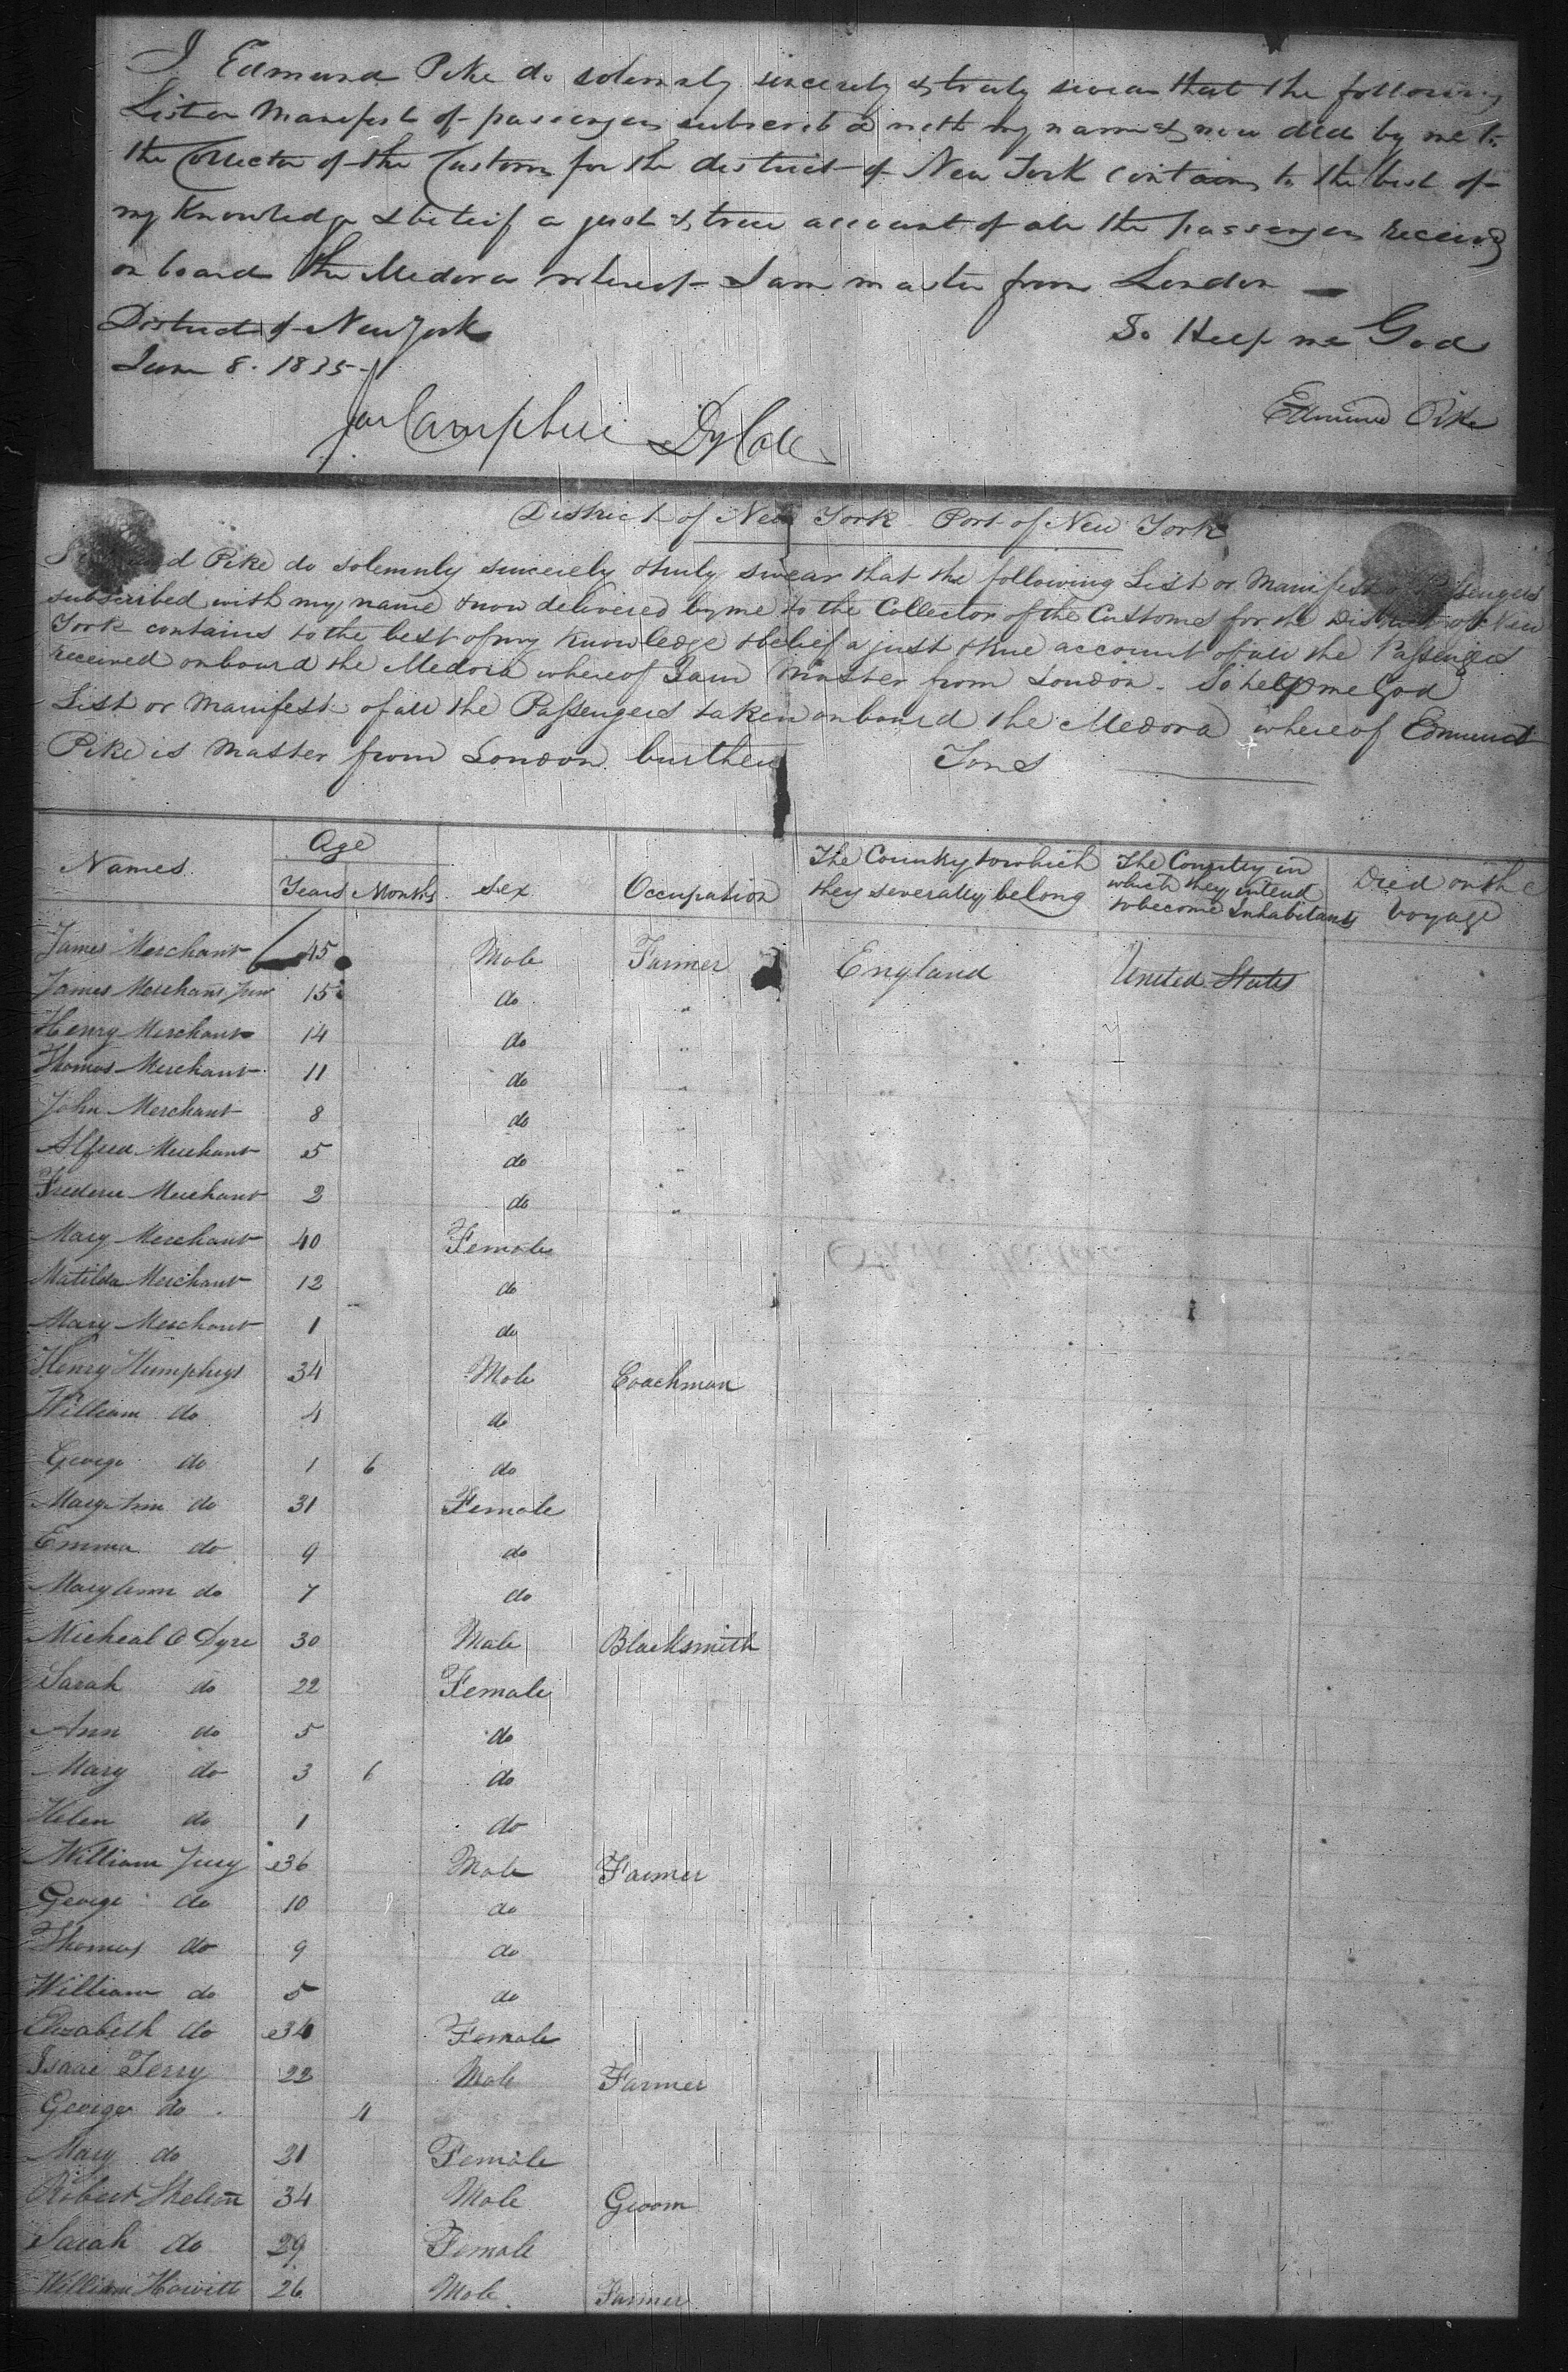 I Edmund Pike do solemnly sincerely & truly swear that the following
List or Manifest of passengers subscribed with my name & now deld by me to
the Collector of the Customs for the district of New York contains to the best of
my Knowledge & belief a just & true account of all the passengers received
on board the Medora whereof I am master from London
District of New York So Help me God
June 8. 1835
Edmund Pike
Jas Campbell Dy Coll
District of New York Port of New York
Pike do solemnly sincerely & truly swear that the following List or Manifest of Passengers
subscribed with my name & now delivered by me to the Collector of the Customs for the District of New
York contains to the best of my Knowledge & belief a just & true account of all the Passengers
received onboard the Medora whereof I am Master from London. So help me God
List or Manifest of all the Passengers taken onboard the Medora whereof Edmund
Pike is Master from London burthen Tons
Names. Age Years Months Sex Occupation The Country to which they severally belong The Country in which they intend to become Inhabitants Died on the Voyage
James Merchant 45 Male Farmer England United States
James Merchant Junr 15 do "
Henry Merchant 14 do "
Thomas Merchant 11 do "
John Merchant 8 do "
Alfred Merchant 5 do "
Frederic Merchant 2 do "
Mary Merchant 40 Female
Matilda Merchant 12 do
Mary Merchant 1 do
Henry Humphrys 34 Male Coachman
William do 4 do
George do 1 6 do
Mary Ann do 31 Female
Emma do 9 do
Mary Ann do 7 do
Micheal O Dyre 30 Male Blacksmith
Sarah do 22 Female
Ann do 5 do
Mary do 3 6 do
Helen do 1 do
William Jury 36 Male Farmer
George do 10 do
Thomas do 9 do
William do 5 do
Elizabeth do 34 Female
Isaac Terry 22 Male Farmer
George do 4
Mary do 21 Female
Robert Skelton 34 Male Groom
Sarah do 29 Female
William Howitt 26 Male Farmer